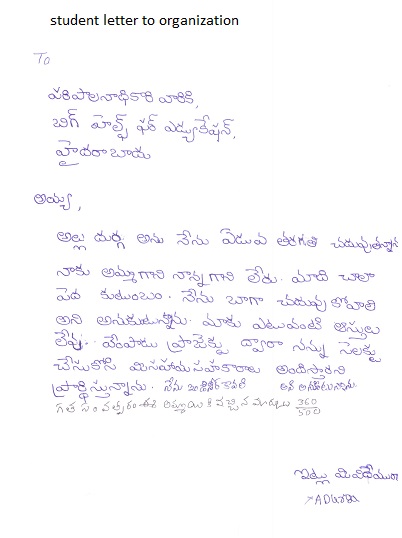 student letter to organization
To
పరిపాలనాధికారి వారికి,
బిగ్ హెల్ప్ ఫర్ ఎడ్యుకేషన్,
హైదరాబాదు
అయ్య,
అల్లు దుర్గ అను నేను ఏడువ తరగతి చదువుతున్నాను
నాకు అమ్మగాని నాన్నగాని లేరు. మాది చాలా
పెద కుటుంబం. నేను బాగా చదువుకోవాలి
అని అనుకుటున్నాను. మాకు ఎటువంటి ఆస్తులు
లేవు. ప్రాజెక్టు ద్వారా నన్ను సెలక్టు
చేసుకోని మీసహాయసహకారాలు అందిస్తారని
ప్రార్థిస్తున్నాను. నేను అని అనుకుంటున్నాను
గత సంవత్సరం ఈ అమ్మాయికి వచ్చిన మార్కులు 360/500
ఇట్లు మీ విధేయురాలు